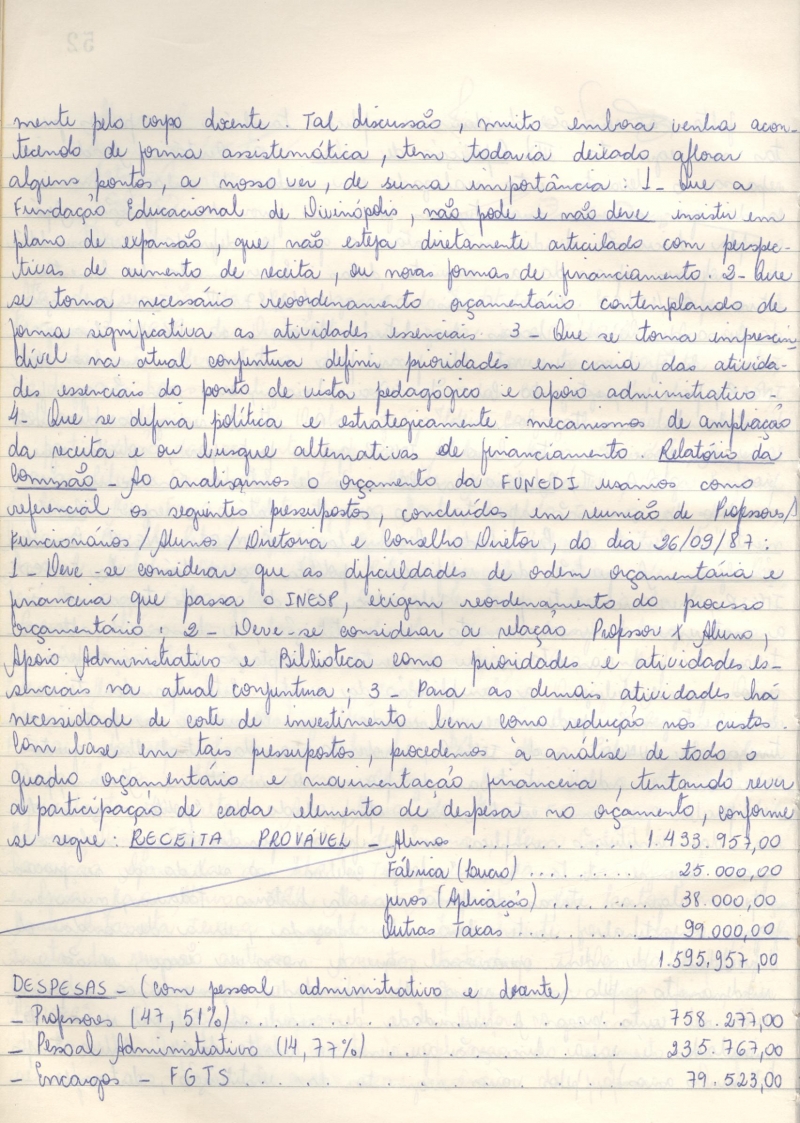 mente pelo corpo docente. Tal discussão, muito embora venha acon-
tecendo de forma assistemática, tem todavia deixado aflorar
alguns pontos, a nosso ver, de suma importância: 1- Que a
Fundação Educacional de Divinópolis, não pode e não deve insistir em
plano de expansão, que não esteja diretamente articulado com perspec-
tivas de aumento de receita, ou novas formas de financiamento. 2- Que
se torna necessário reordenamento orçamentário contemplando de
forma significativa as atividades essenciais. 3 - Que se torna imprescin-
dível na atual conjuntura definir prioridades em cima das ativida-
des essenciais do ponto de vista pedagógico e apoio administrativo -
4- Que se defina política e estrategicamente mecanismos de ampliação
da receita e ou busque alternativas de financiamento. Relatório da
Comissão - Ao analisarmos o orçamento da FUNEDI usamos como
referencial os seguintes pressupostos, concluídos em reunião de Professores/
Funcionários / Alunos / Diretoria e Conselho Diretor, do dia 26/09/87:
1 - Deve-se considerar que as dificuldades de ordem orçamentária e
financeira que passa o INESP, exigem reordenamento do processo
orçamentário; 2 - Deve-se considerar a relação Professor x Aluno,
Apoio Administrativo e Biblioteca como prioridades e atividades es-
senciais na atual conjuntura; 3 - Para as demais atividades há
necessidade de corte de investimento bem como redução nos custos.
Com base em tais pressupostos, procedemos à análise de todo o
quadro orçamentário e movimentação financeira, tentando rever
a participação de cada elemento de despesa no orçamento, conforme
se segue: RECEITA PROVÁVEL - Alunos .......... 1.433.957,00
Fábrica (lucro) ......... 25.000,00
juros (Aplicação) ....... 38.000,00
Outras taxas .......... 99.000,00
1.595.957,00
DESPESAS - (com pessoal administrativo e docente)
- Professores (47,51%) .............. 758.277,00
- Pessoal Administrativo (14,77%) .......... 235.767,00
- Encargos - FGTS .............. 79.523,00